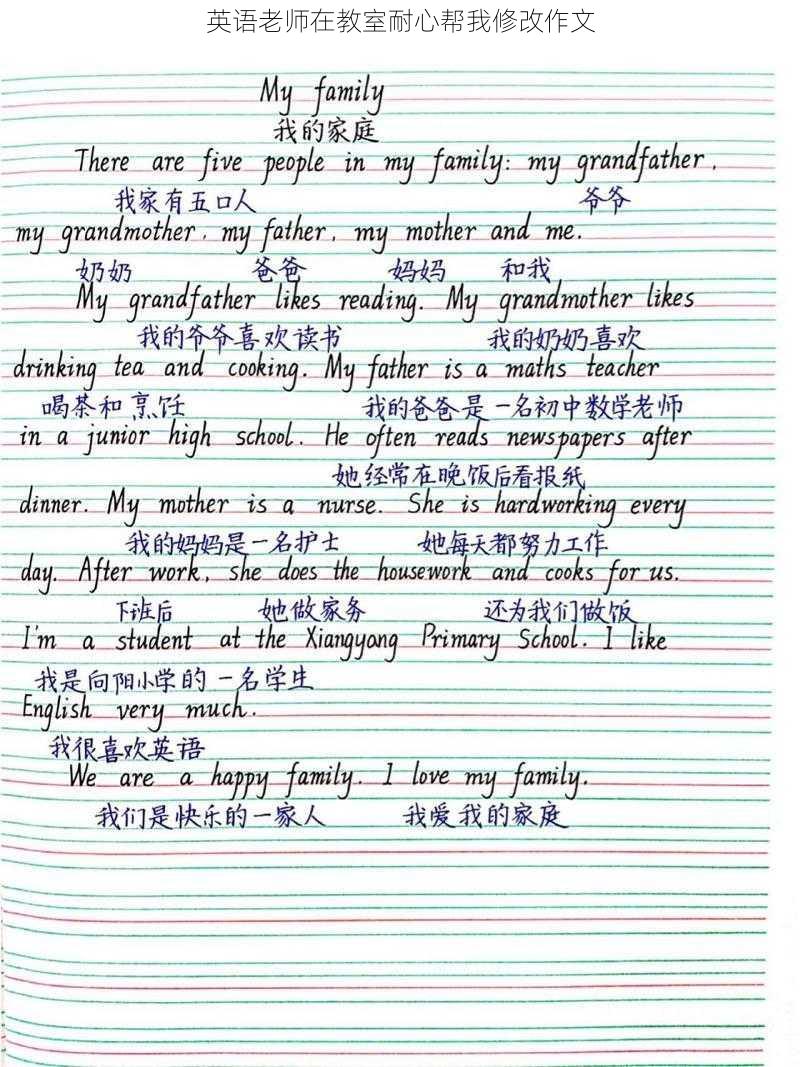 英语老师在教室耐心帮我修改作文
My family
我的家庭
There are five people in my family: my grandfather,
我家有五口人 爷爷
my grandmother, my father, my mother and me.
奶奶 爸爸 妈妈 和我
My grandfather likes reading. My grandmother likes
我的爷爷喜欢读书 我的奶奶喜欢
drinking tea and cooking. My father is a maths teacher
喝茶和烹饪 我的爸爸是一名初中数学老师
in a junior high school. He often reads newspapers after
她经常在晚饭后看报纸
dinner. My mother is a nurse. She is hardworking every
我的妈妈是一名护士 她每天都努力工作
day. After work, she does the housework and cooks for us.
下班后 她做家务 还为我们做饭
I'm a student at the Xiangyang Primary School. I like
我是向阳小学的一名学生
English very much.
我很喜欢英语
We are a happy family. I love my family.
我们是快乐的一家人 我爱我的家庭